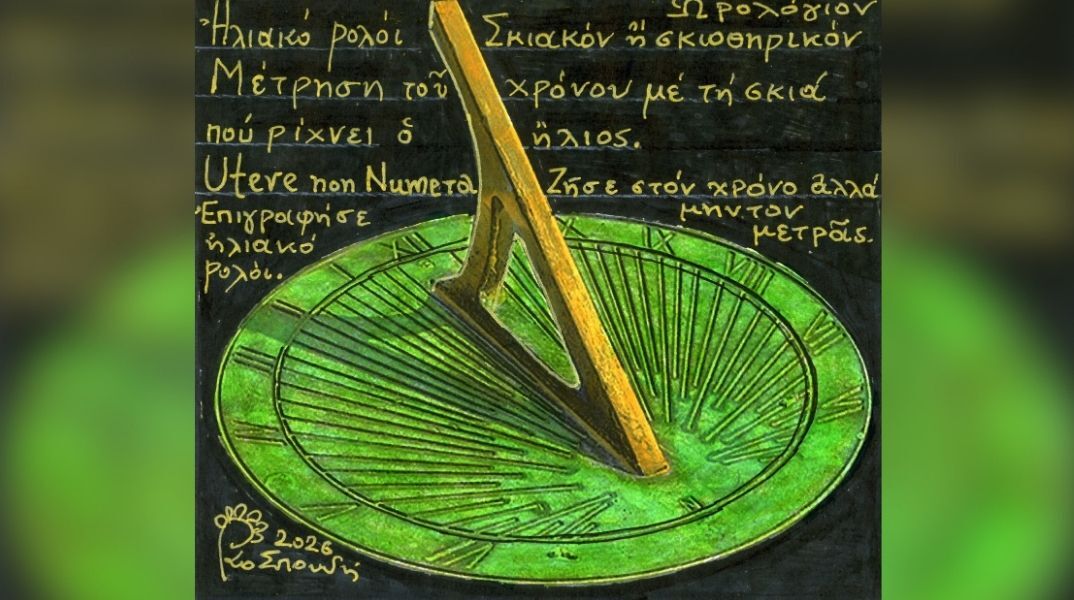 Ὡρολόγιον
Ἡλιακό ρολόι Σκιακόν ἤ σκιοθηρικόν
Μέτρηση τοῦ χρόνου μέ τή σκιά
πού ρίχνει ὁ ἥλιος.
Utere non Numera Ζῆσε στόν χρόνο ἀλλά
μην τον
μετρᾶς.
Ἐπιγραφή σε
ἡλιακό
ρολόι.
XII
IX
VIII
2026